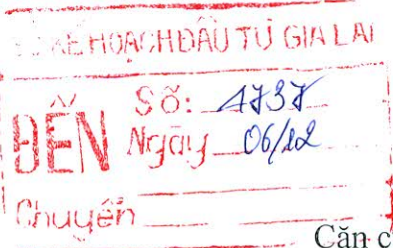 KẾ HOẠCH ĐẦU TƯ GIA LAI
ĐẾN
Số: 4737
Ngày 06/12
Chuyển
Căn c